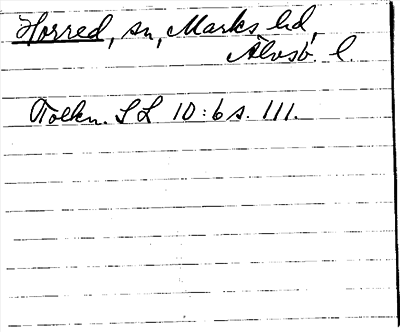 Horred, sn, Marks hd,
Älvsb. l.
Tolkn. SL 10:6 s. 111.